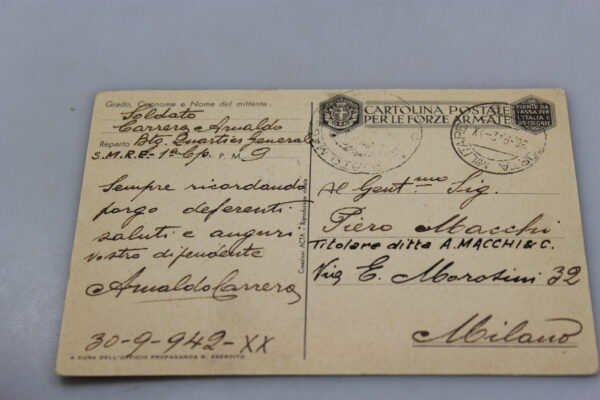 Grado, Cognome e Nome del mittente:
Soldato
Carrera Arnaldo
Reparto Btg. Quartier Generale
S.M.R.E. - 1ª C/o P. M. 9
Sempre ricordando
porgo deferenti
saluti e auguri
Vostro dipendente
Arnaldo Carrera
30-9-942-XX
A CURA DELL'UFFICIO PROPAGANDA R. ESERCITO
Creazioni ACTA - Riproduzione vietata
CARTOLINA POSTALE
PER LE FORZE ARMATE
ESENTE DA
TASSA PER
L'ITALIA E
LE COLONIE
POSTA MILITARE
Al Gent.mo Sig.
Piero Macchi
Titolare ditta A. MACCHI & C.
Via E. Morosini 32
Milano